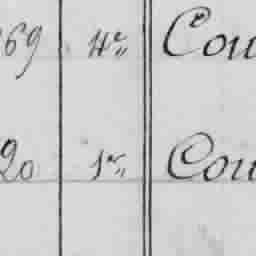 69 4e„ Cou
20 1er„ Cou